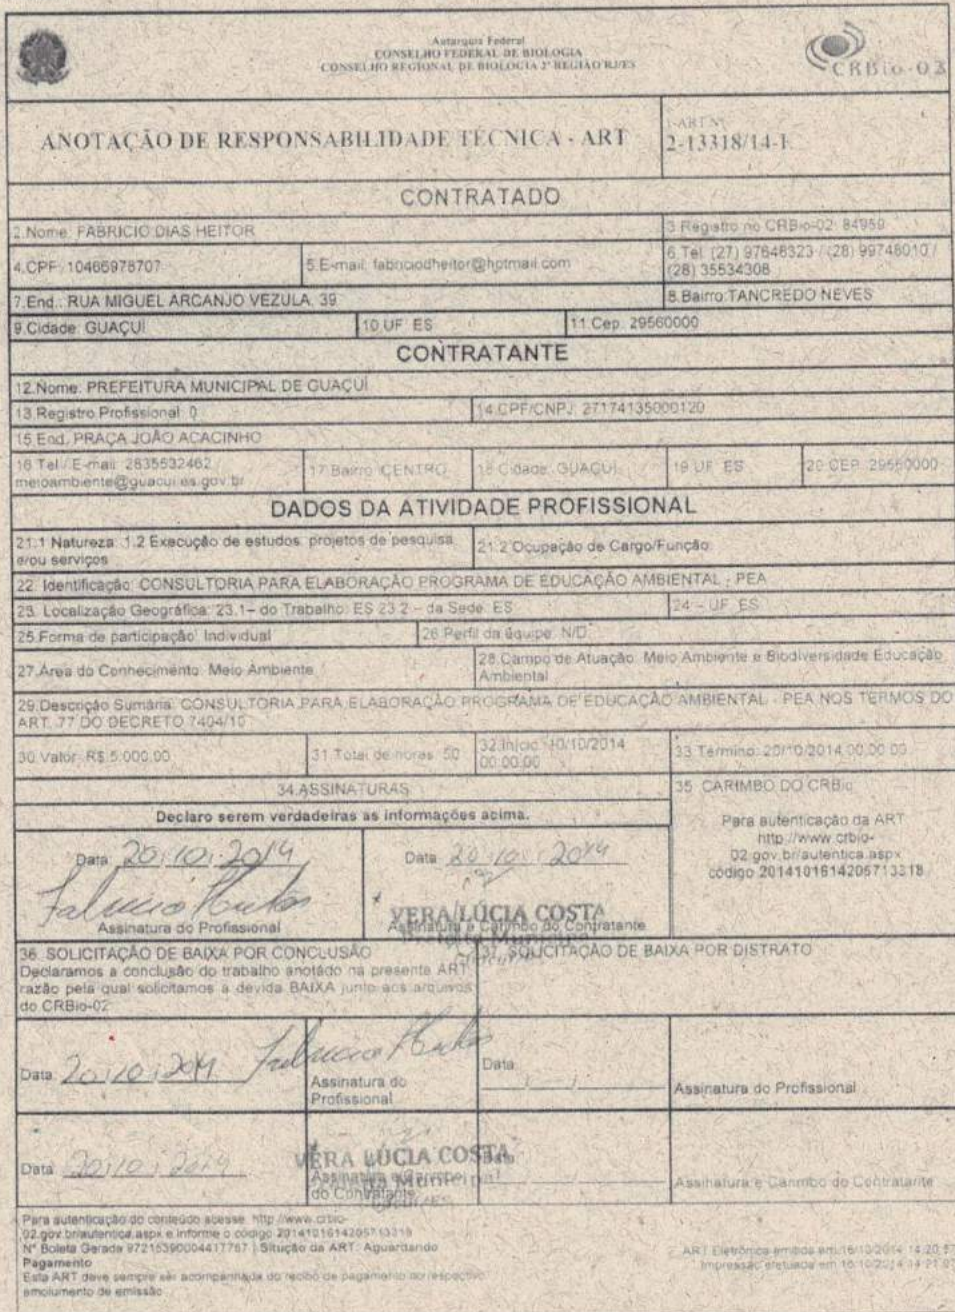 Autarquia Federal
CONSELHO FEDERAL DE BIOLOGIA
CONSELHO REGIONAL DE BIOLOGIA 2ª REGIÃO RJ/ES
CRBio-02
ANOTAÇÃO DE RESPONSABILIDADE TÉCNICA - ART
1-ART Nº
2-13318/14-E
CONTRATADO
2.Nome: FABRICIO DIAS HEITOR
3.Registro no CRBio-02: 84959
4.CPF: 10466978707
5.E-mail: fabriciodheitor@hotmail.com
6.Tel: (27) 97648323 / (28) 99748010 /
(28) 35534308
7.End.: RUA MIGUEL ARCANJO VEZULA, 39
8.Bairro:TANCREDO NEVES
9.Cidade: GUAÇUÍ
10.UF: ES
11.Cep: 29560000
CONTRATANTE
12.Nome: PREFEITURA MUNICIPAL DE GUAÇUÍ
13.Registro Profissional: 0
14.CPF/CNPJ: 27174135000120
15.End. PRAÇA JOÃO ACACINHO
16.Tel / E-mail: 2835532462 /
meioambiente@guacui.es.gov.br
17.Bairro: CENTRO
18.Cidade: GUAÇUÍ
19.UF: ES
20.CEP: 29560000
DADOS DA ATIVIDADE PROFISSIONAL
21.1 Natureza: 1.2 Execução de estudos, projetos de pesquisa
e/ou serviços
21.2 Ocupação de Cargo/Função:
22. Identificação: CONSULTORIA PARA ELABORAÇÃO PROGRAMA DE EDUCAÇÃO AMBIENTAL - PEA
23. Localização Geográfica: 23.1– do Trabalho: ES 23.2 – da Sede: ES
24 – UF: ES
25.Forma de participação: Individual
26.Perfil da équipe: N/D
27.Área do Conhecimento: Meio Ambiente
28.Campo de Atuação: Meio Ambiente e Biodiversidade Educação
Ambiental
29.Descrição Sumária: CONSULTORIA PARA ELABORAÇÃO PROGRAMA DE EDUCAÇÃO AMBIENTAL - PEA NOS TERMOS DO
ART. 77 DO DECRETO 7404/10
30.Valor: R$ 5.000,00
31.Total de horas: 50
32.Início: 10/10/2014
00:00:00
33.Término: 20/10/2014 00:00:00
34.ASSINATURAS
35. CARIMBO DO CRBio
Declaro serem verdadeiras as informações acima.
Para autenticação da ART
http://www.crbio-
02.gov.br/autentica.aspx
código 2014101614205713318
Data: 20/10/2014
Assinatura do Profissional
Data: 20/10/2014
VERA LÚCIA COSTA
Assinatura e Carimbo do Contratante
36. SOLICITAÇÃO DE BAIXA POR CONCLUSÃO
Declaramos a conclusão do trabalho anotado na presente ART,
razão pela qual solicitamos a devida BAIXA junto aos arquivos
do CRBio-02.
37. SOLICITAÇÃO DE BAIXA POR DISTRATO
Data: 20/10/2014
Assinatura do
Profissional
Data:
Assinatura do Profissional
Data: 20/10/2014
VERA LÚCIA COSTA
Assinatura e Carimbo
do Contratante
Data:
Assinatura e Carimbo do Contratante
Para autenticação do conteúdo acesse: http://www.crbio-
02.gov.br/autentica.aspx e informe o código 2014101614205713318
Nº Boleta Gerada 97215390004417767 | Situção da ART: Aguardando
Pagamento
Esta ART deve sempre ser acompanhada do recibo de pagamento do respectivo
emolumento de emissão
ART Eletrônica emitida em:16/10/2014 14:20:57
Impressão efetuada em 16/10/2014 14:21:07